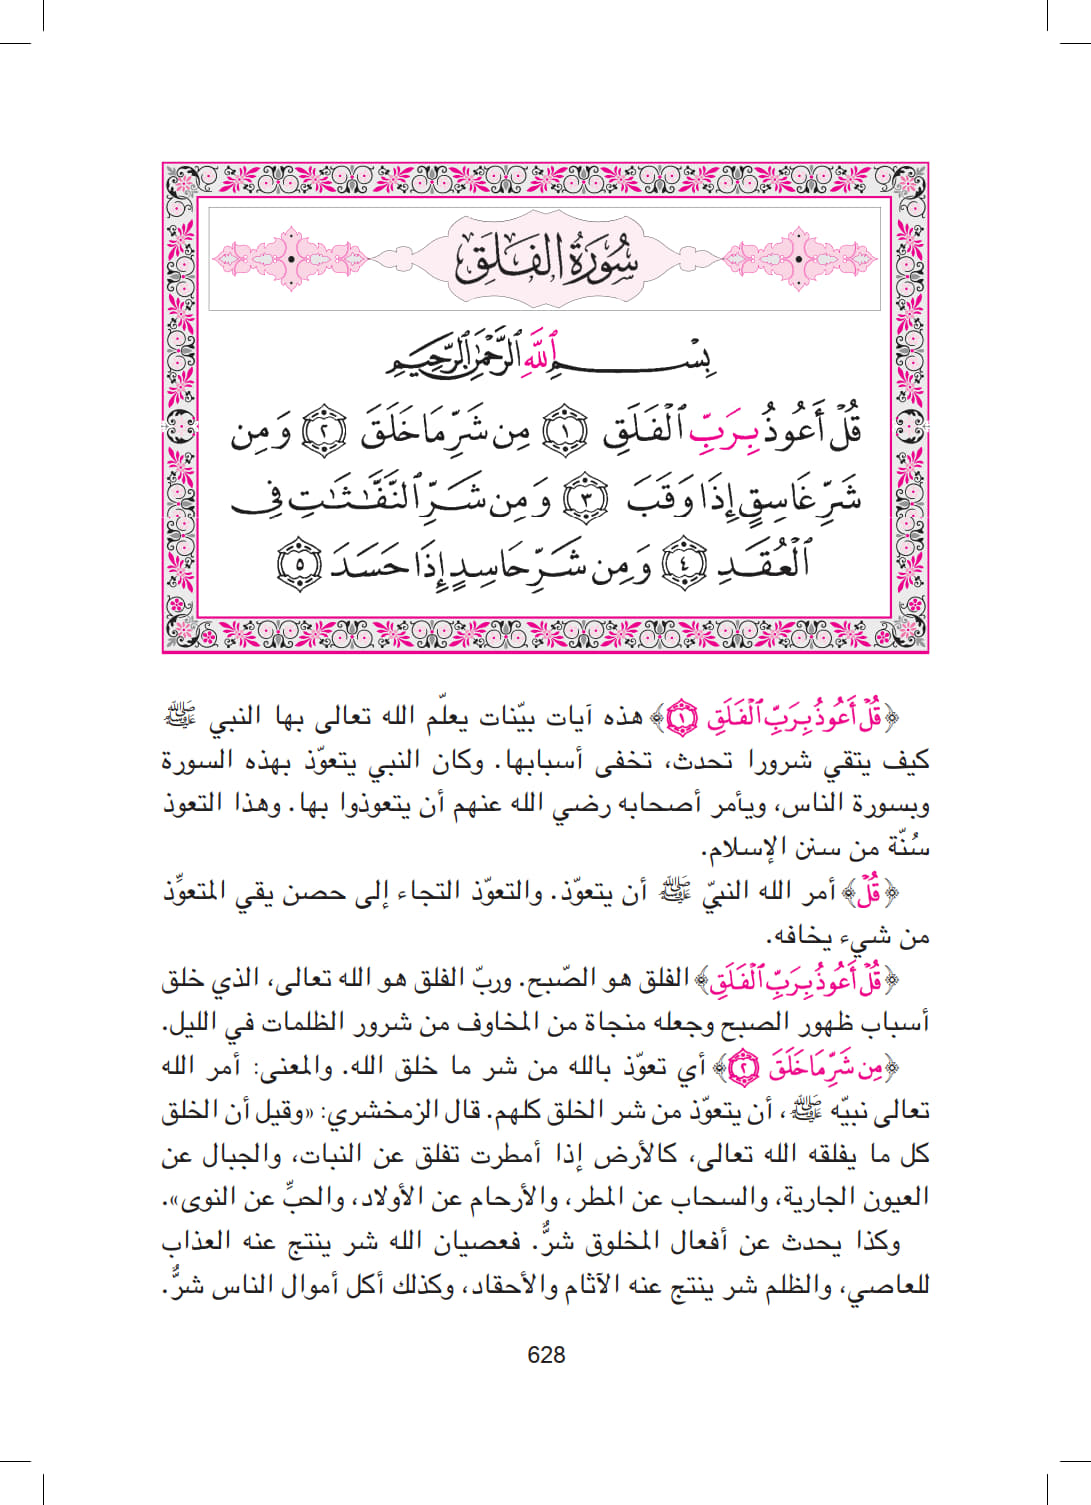 سُورَةُ الفَلَق
بِسْمِ ٱللَّهِ ٱلرَّحْمَٰنِ ٱلرَّحِيمِ
قُلْ أَعُوذُ بِرَبِّ ٱلْفَلَقِ ۝١ مِن شَرِّ مَا خَلَقَ ۝٢ وَمِن
شَرِّ غَاسِقٍ إِذَا وَقَبَ ۝٣ وَمِن شَرِّ ٱلنَّفَّٰثَٰتِ فِى
ٱلْعُقَدِ ۝٤ وَمِن شَرِّ حَاسِدٍ إِذَا حَسَدَ ۝٥
﴿قُلْ أَعُوذُ بِرَبِّ ٱلْفَلَقِ ۝١﴾ هذه آيات بيّنات يعلّم الله تعالى بها النبي ﷺ
كيف يتقي شرورا تحدث، تخفى أسبابها. وكان النبي يتعوّذ بهذه السورة
وبسورة الناس، ويأمر أصحابه رضي الله عنهم أن يتعوذوا بها. وهذا التعوذ
سُنّة من سنن الإسلام.
﴿قُلْ﴾ أمر الله النبيّ ﷺ أن يتعوّذ. والتعوّذ التجاء إلى حصن يقي المتعوِّذ
من شيء يخافه.
﴿قُلْ أَعُوذُ بِرَبِّ ٱلْفَلَقِ﴾ الفلق هو الصّبح. وربّ الفلق هو الله تعالى، الذي خلق
أسباب ظهور الصبح وجعله منجاة من المخاوف من شرور الظلمات في الليل.
﴿مِن شَرِّ مَا خَلَقَ ۝٢﴾ أي تعوّذ بالله من شر ما خلق الله. والمعنى: أمر الله
تعالى نبيّه ﷺ، أن يتعوّذ من شر الخلق كلهم. قال الزمخشري: «وقيل أن الخلق
كل ما يفلقه الله تعالى، كالأرض إذا أمطرت تفلق عن النبات، والجبال عن
العيون الجارية، والسحاب عن المطر، والأرحام عن الأولاد، والحبِّ عن النوى».
وكذا يحدث عن أفعال المخلوق شرٌّ. فعصيان الله شر ينتج عنه العذاب
للعاصي، والظلم شر ينتج عنه الآثام والأحقاد، وكذلك أكل أموال الناس شرٌّ.
628